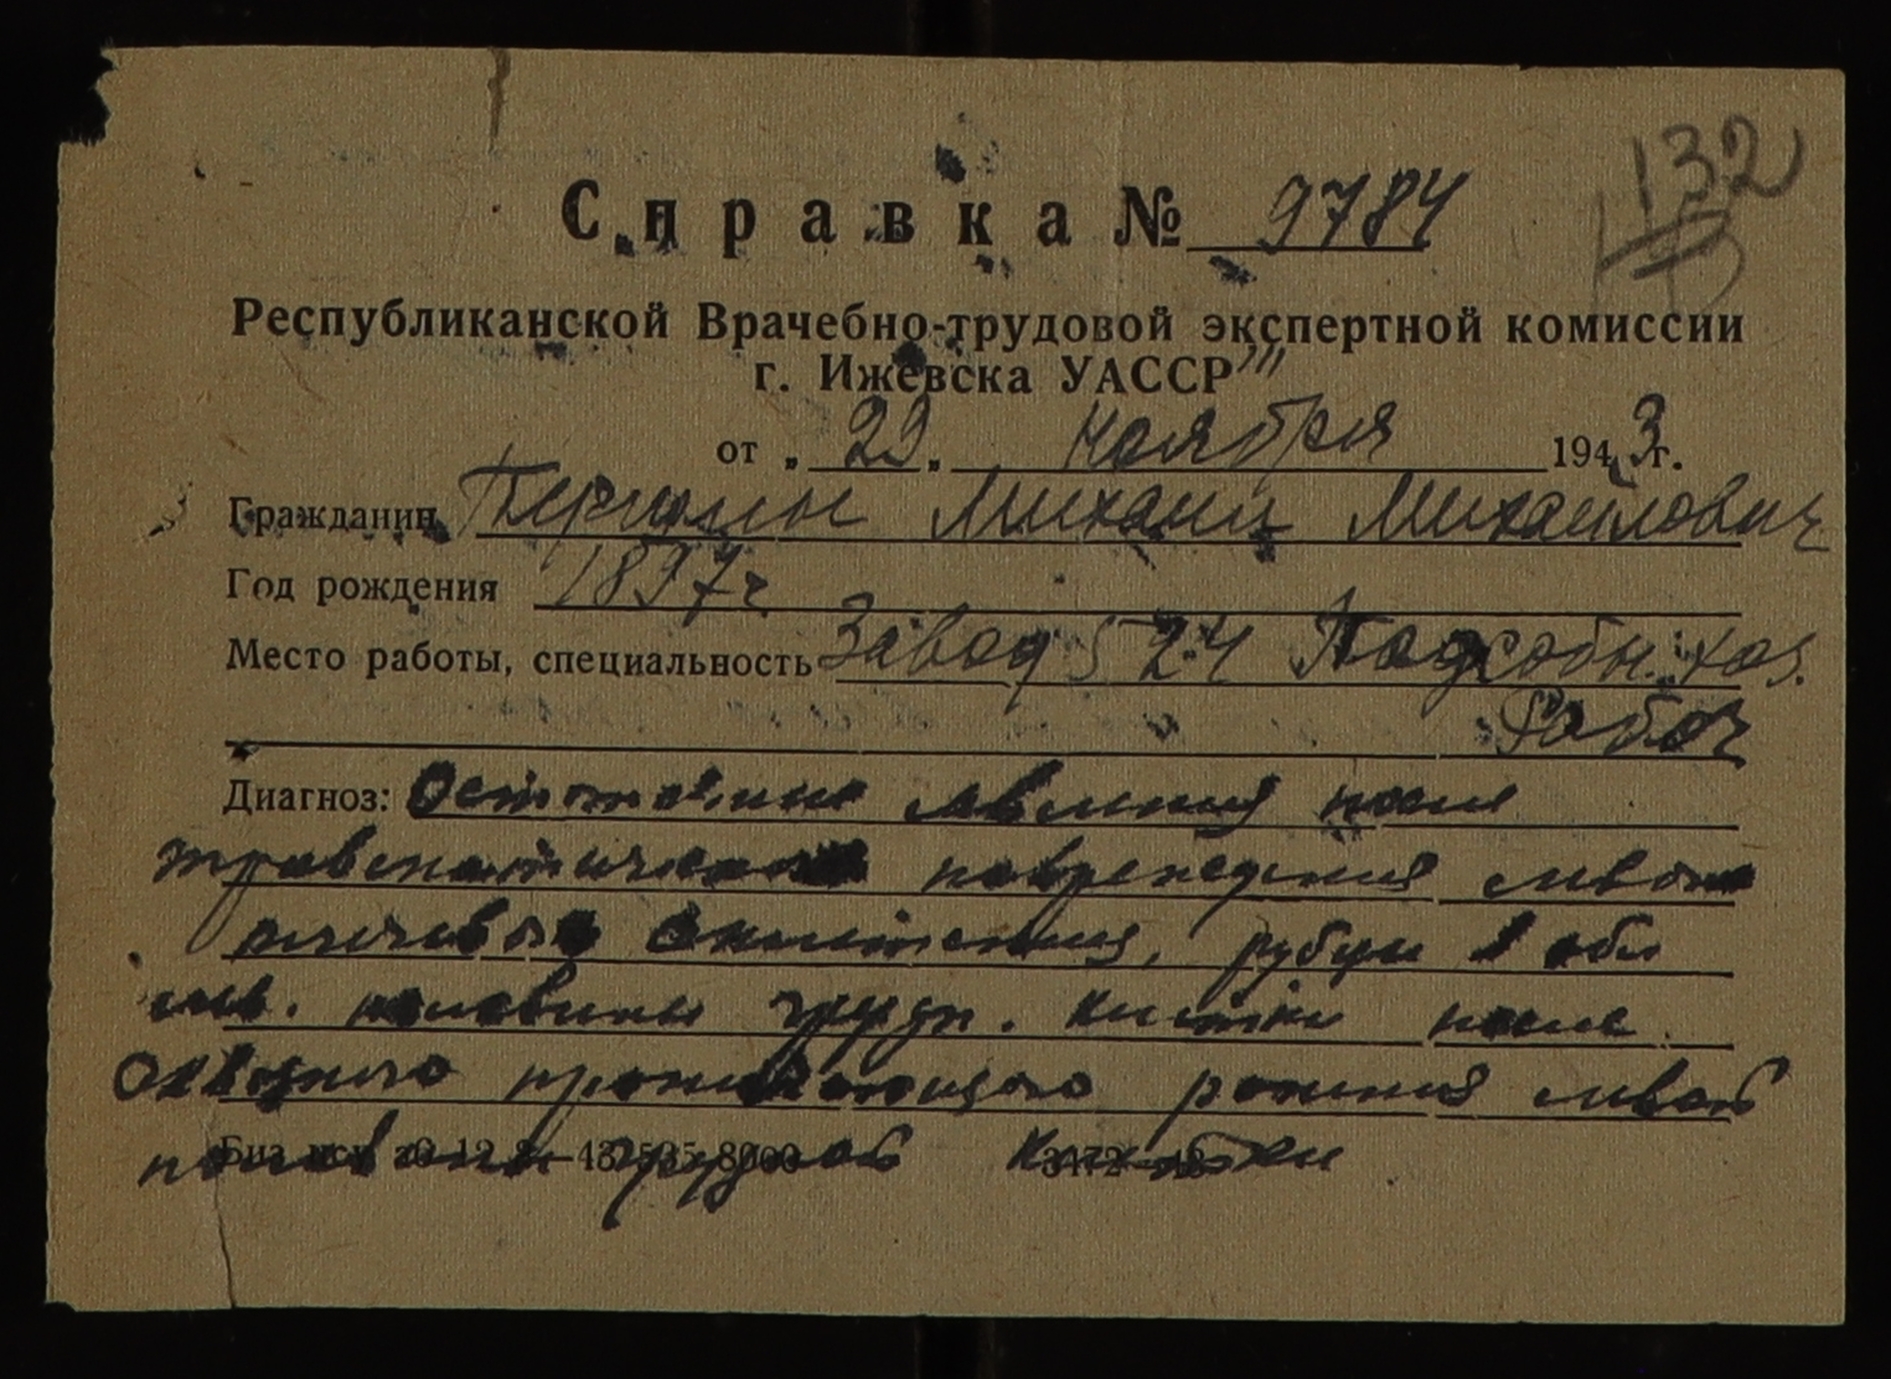 132
Справка № 9784
Республиканской Врачебно-трудовой экспертной комиссии
г. Ижевска УАССР
от „ 22 „ ноября 1943 г.
Гражданин Михаил Михайлович
Год рождения 1897 г.
Место работы, специальность Завод 524 Подсобн. хоз.
Рабоч
Диагноз: Остаточные явления после
травматического повреждения левого
плечевого сплетения, рубцы в обл
лев. половины грудн. клетки после
проникающего ранения левой
половины грудной клетки